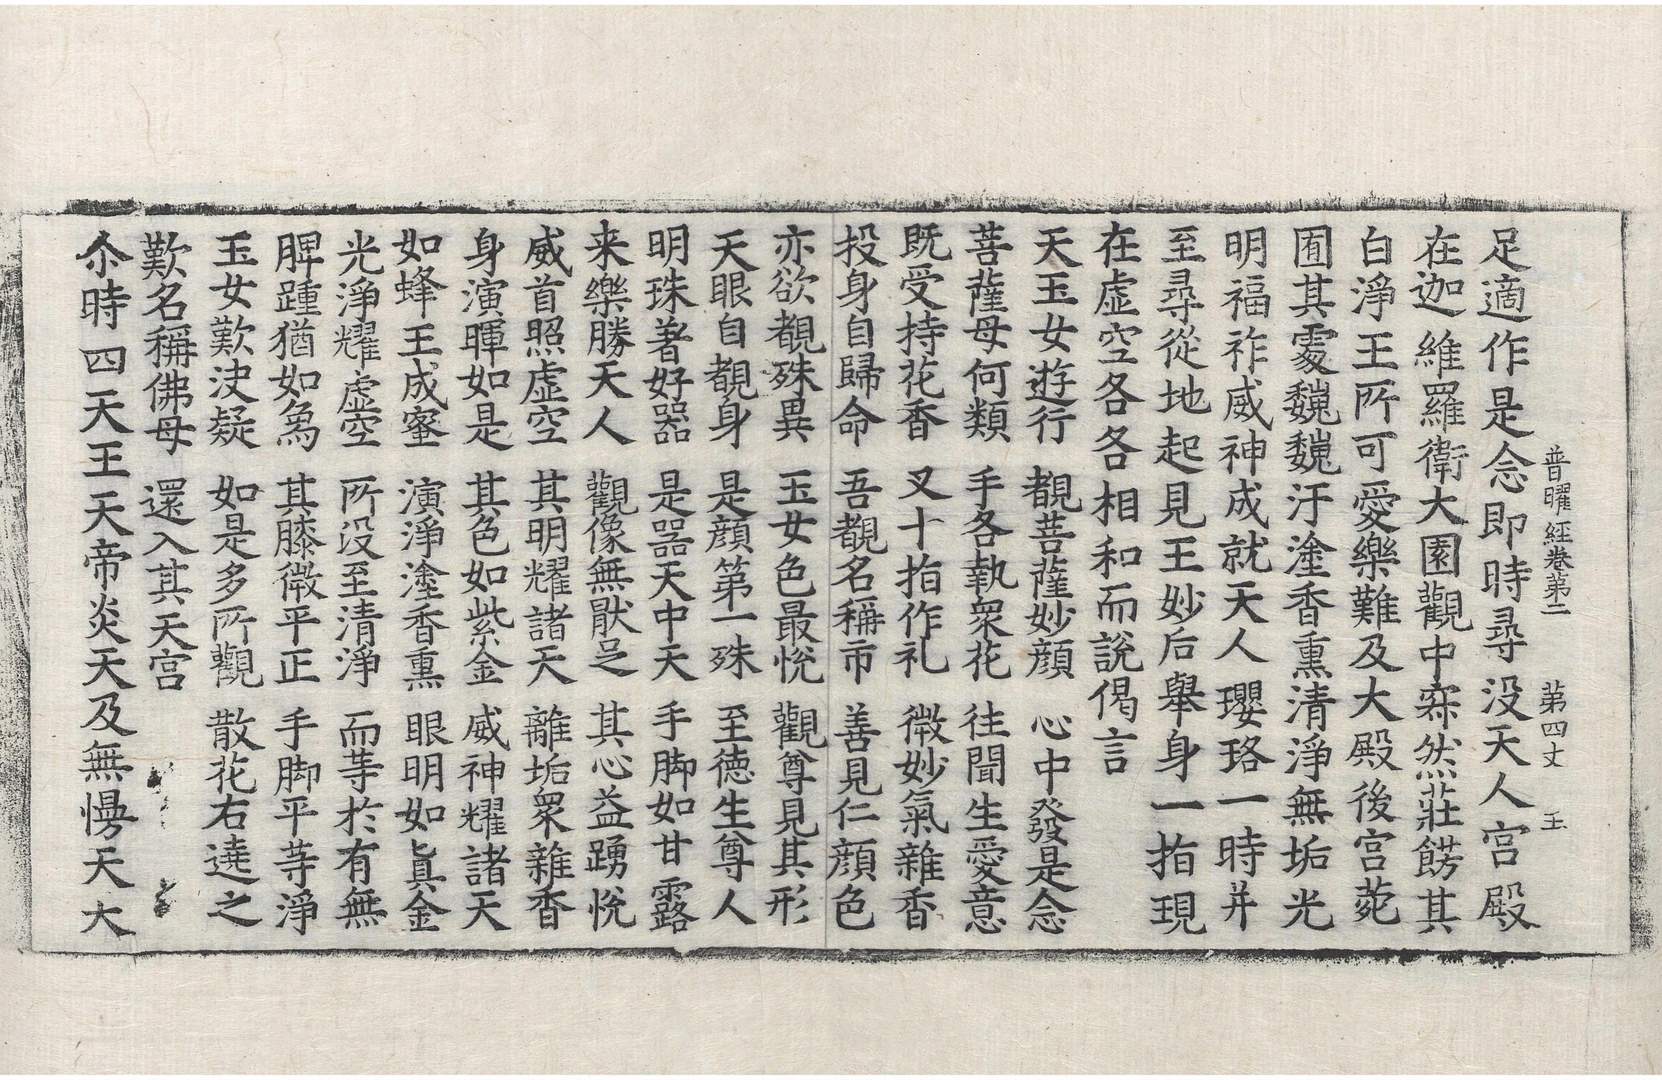 普曜經卷第二　第四丈　王
足適作是念即時尋没天人宮殿
在迦維羅衛大園觀中寂然莊餝其
白淨王所可愛樂難及大殿後宮菀
囿其處魏魏汙塗香熏清淨無垢光
明福祚威神成就天人瓔珞一時并
至尋從地起見王妙后舉身一指現
在虛空各各相和而說偈言
天玉女遊行　覩菩薩妙顔　心中發是念
菩薩母何類　手各執衆花　往聞生愛意
既受持花香　叉十指作礼　微妙氣雜香
投身自歸命　吾覩名稱帀　善見仁顔色
亦欲覩殊異　玉女色最悅　觀尊見其形
天眼自覩身　是顔第一殊　至德生尊人
明珠著好器　是器天中天　手脚如甘露
来樂勝天人　觀像無猒足　其心益踊悅
威首照虛空　其明耀諸天　離垢衆雜香
身演暉如是　其色如紫金　威神耀諸天
如蜂王成蜜　演淨塗香熏　眼明如真金
光淨耀虛空　所没至清淨　而等於有無
䏶踵猶如爲　其膝微平正　手脚平等淨
玉女歎決疑　如是多所觀　散花右遶之
歎名稱佛母　還入其天宮
尒時四天王天帝炎天及無慢天大